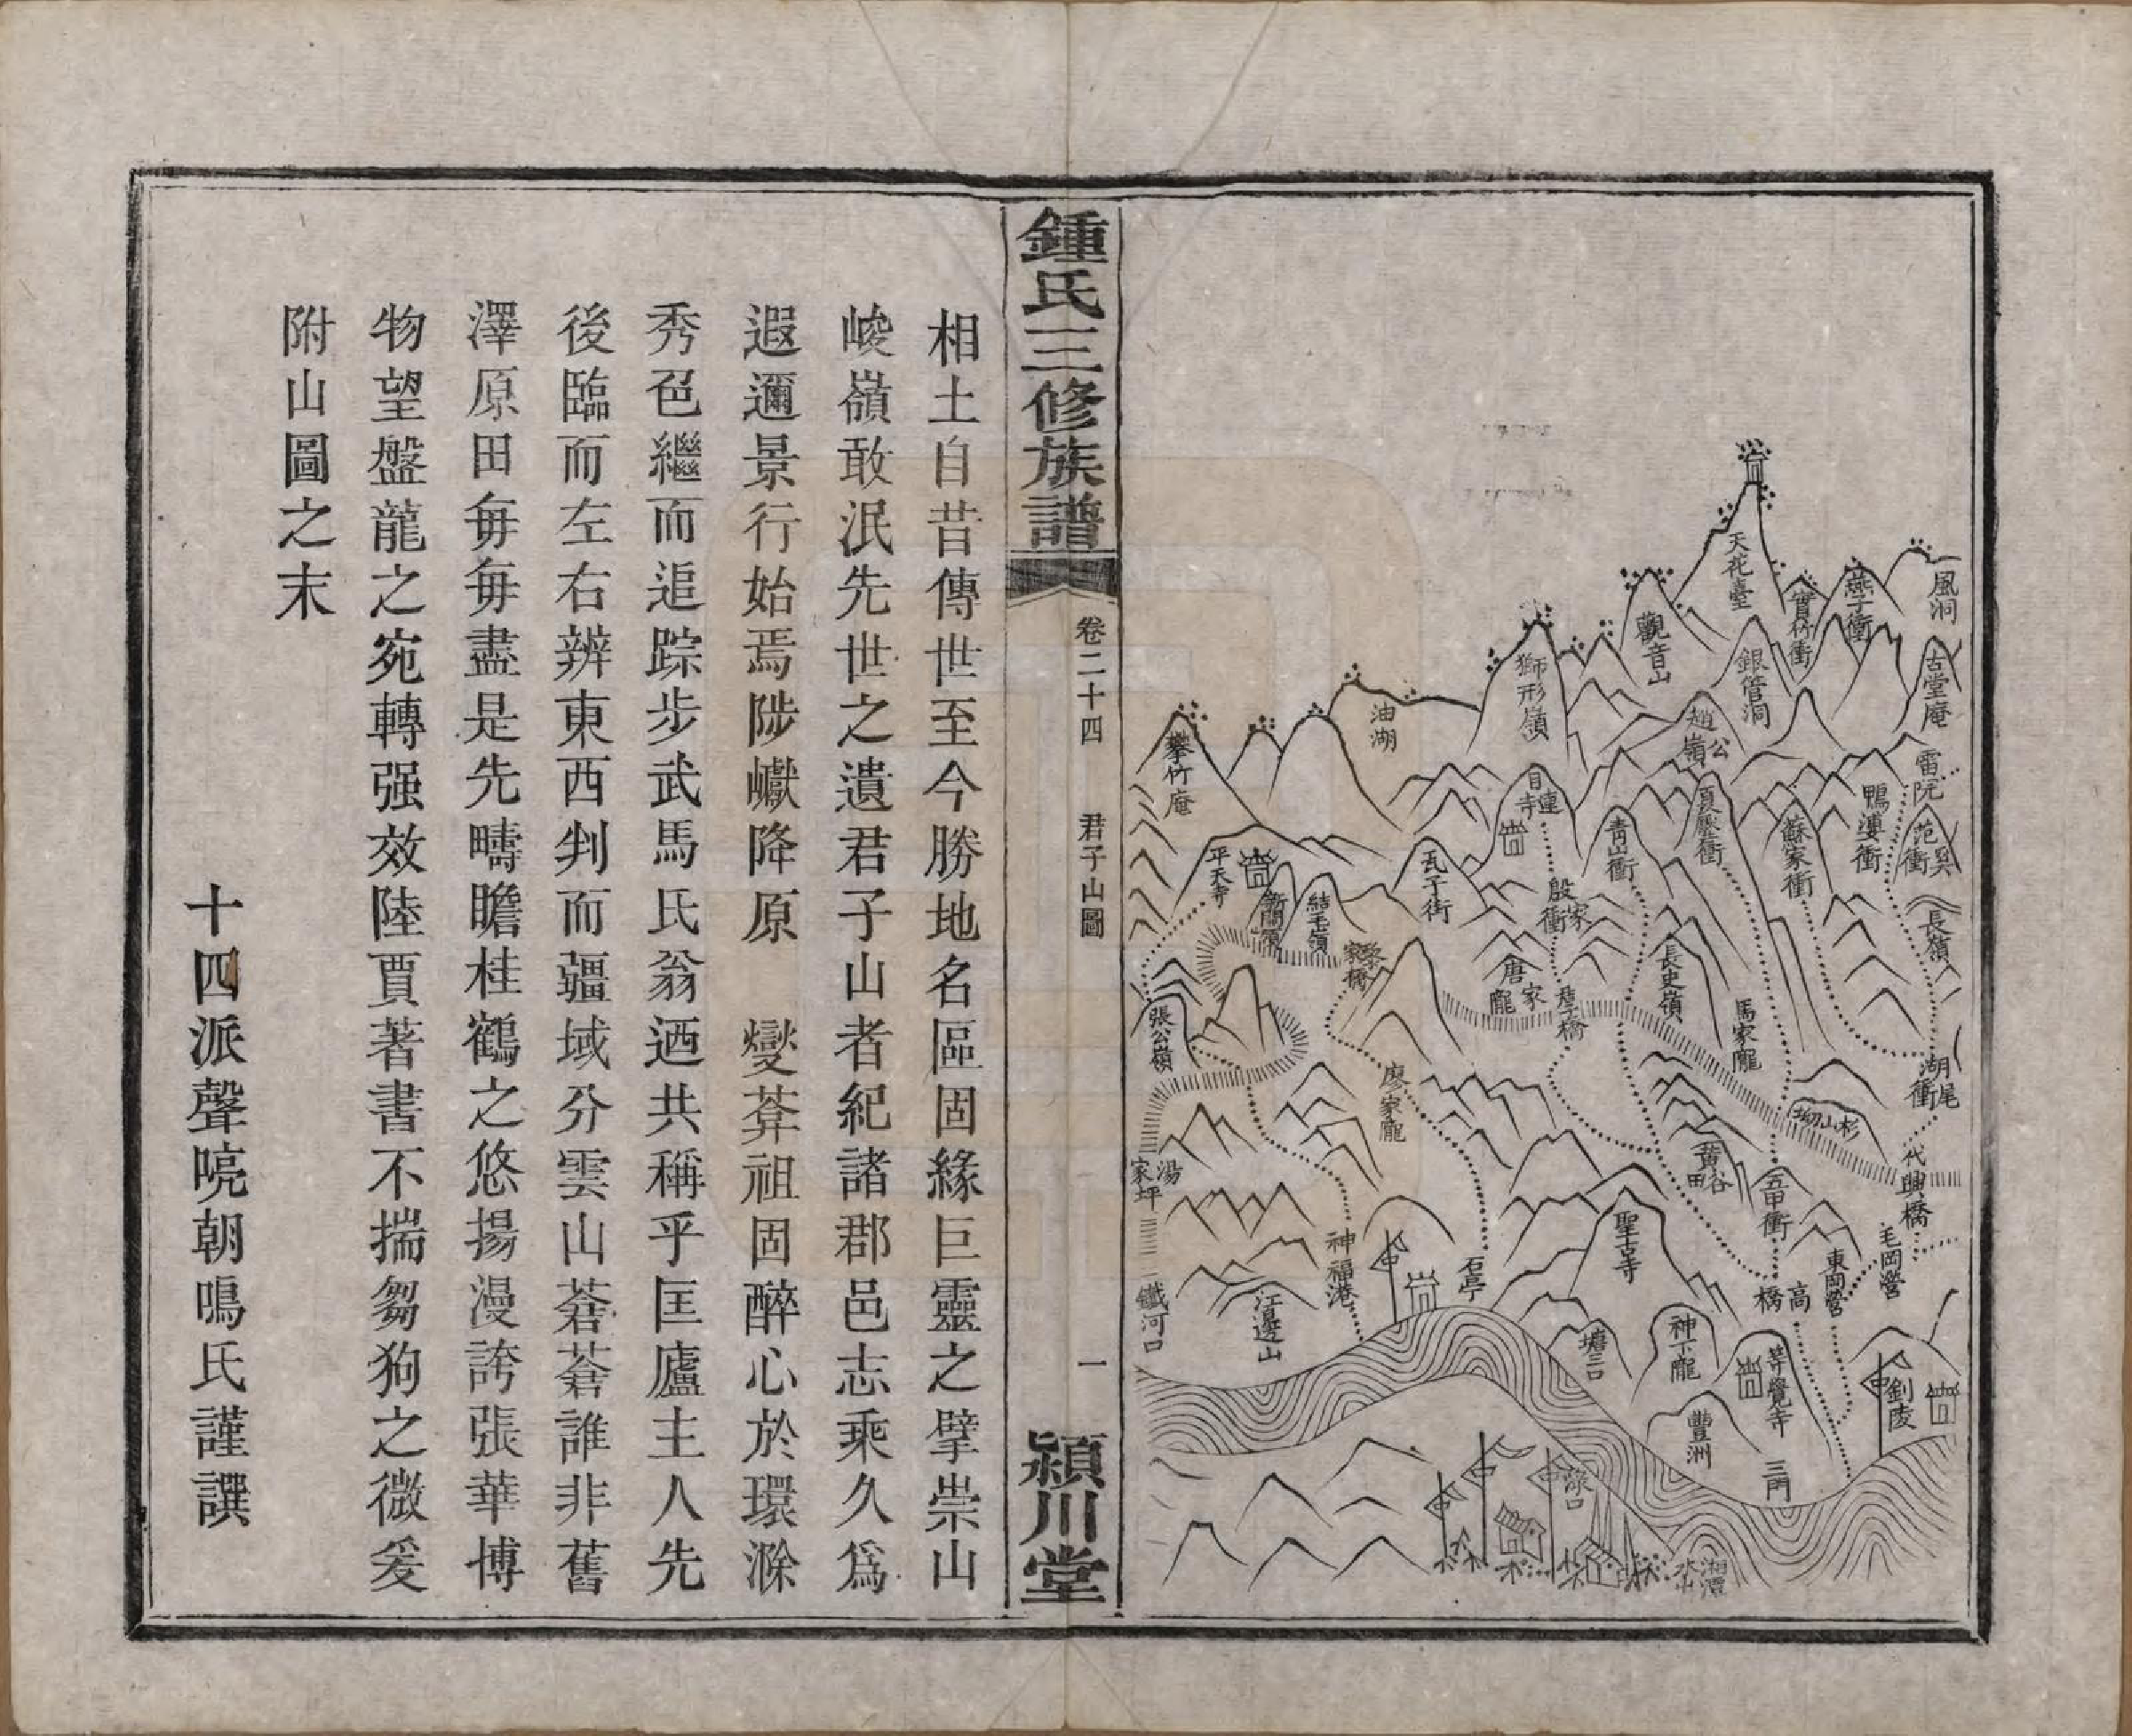 風洞
燕子衝
寶竹衝
天花臺
觀音山
銀管洞
古堂庵
獅形嶺
趙公嶺
油湖
攀竹庵
雷阮
鴨婆衝
范吳衝
蘇家衝
青山衝
目連寺
殷家衝
瓦子街
結毛嶺
平天寺
長嶺
黎家橋
唐家龐
長史嶺
馬家龐
張公嶺
湖尾衝
廖家龐
杉山坳
代興橋
湯家坪
黃谷田
五甲衝
聖古寺
毛岡營
東岡營
高橋
石亭
神福港
江邊山
鐵河口
塘三口
神下龐
等覺寺
釗陵
豐洲
三門
淥口
湘潭
鍾氏三修族譜
卷二十四
君子山圖
一
潁川堂
相土自昔傳世至今勝地名區固緣巨靈之擘崇山
峻嶺敢泯先世之遺君子山者紀諸郡邑志乘久爲
遐邇景行始焉陟巘降原 燮莽祖固醉心於環滁
秀色繼而追踪步武馬氏翁迺共稱乎匡廬主人先
後臨而左右辨東西判而疆域分雲山蒼蒼誰非舊
澤原田每每盡是先疇瞻桂鶴之悠揚漫誇張華博
物望盤龍之宛轉强效陸賈著書不揣芻狗之微爰
附山圖之末
十四派聲喨朝鳴氏謹譔